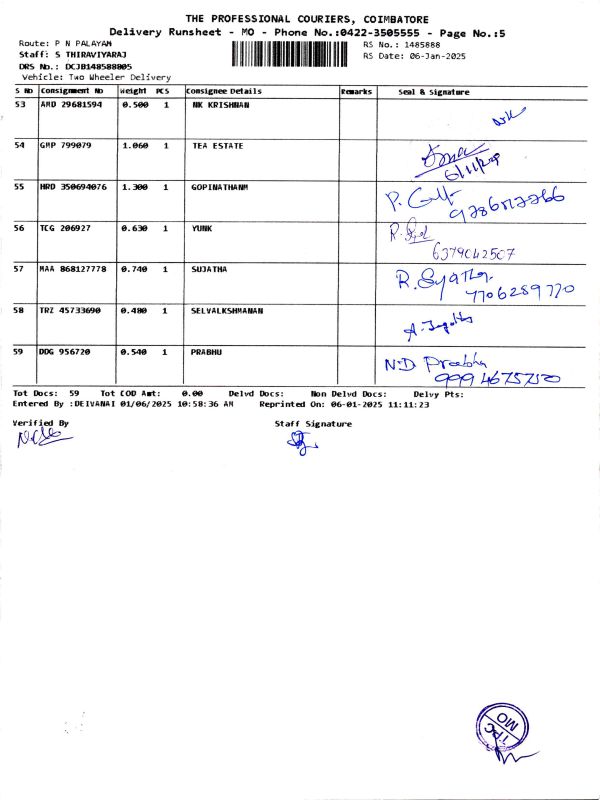 THE PROFESSIONAL COURIERS, COIMBATORE
Delivery Runsheet - MO - Phone No.:0422-3505555 - Page No.:5
Route: P N PALAYAM
RS No.: 1485888
Staff: S THIRAVIYARAJ
RS Date: 06-Jan-2025
DRS No.: DCJB148588805
Vehicle: Two Wheeler Delivery
S No Consignment No Weight PCS Consignee Details Remarks Seal & Signature
53 AMD 29681594 0.500 1 NK KRISHNAN
54 GMP 799079 1.060 1 TEA ESTATE
55 HRD 350694076 1.300 1 GOPINATHANM
56 TCG 206927 0.630 1 YUNK
6379042507
57 MAA 868127778 0.740 1 SUJATHA
7706289770
58 TRZ 45733690 0.480 1 SELVALKSHMANAN
59 DDG 956720 0.540 1 PRABHU
N.D Preebha
9994675750
Tot Docs: 59 Tot COD Amt: 0.00 Delvd Docs: Non Delvd Docs: Delvy Pts:
Entered By :DEIVANAI 01/06/2025 10:58:36 AM Reprinted On: 06-01-2025 11:11:23
Verified By Staff Signature
TPC
MO